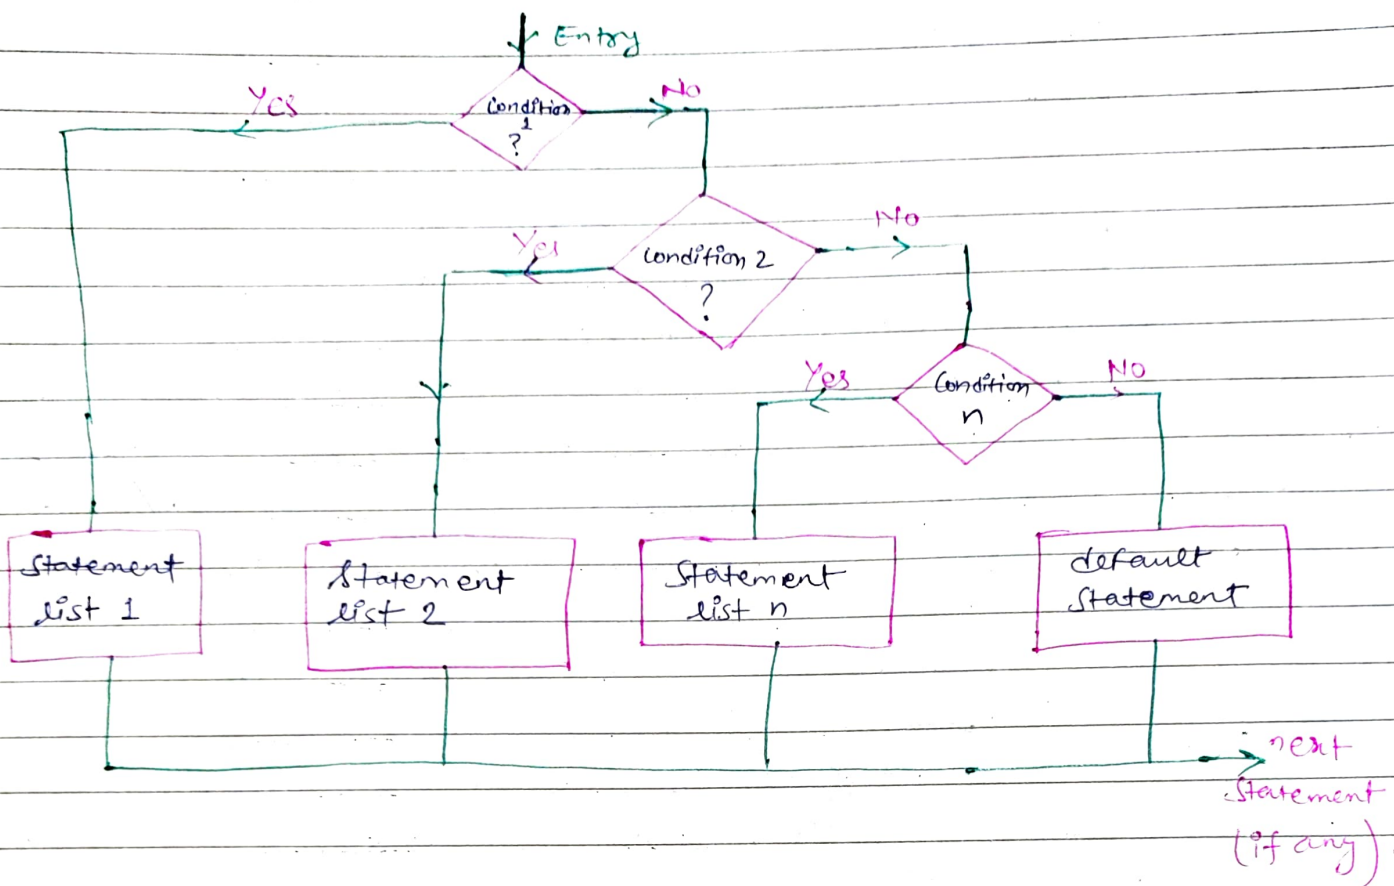 Entry
Yes
No
Condition
1
?
Yes
No
Condition 2
?
Yes
No
Condition
n
Statement
list 1
Statement
list 2
Statement
list n
default
Statement
next
Statement
(if any)